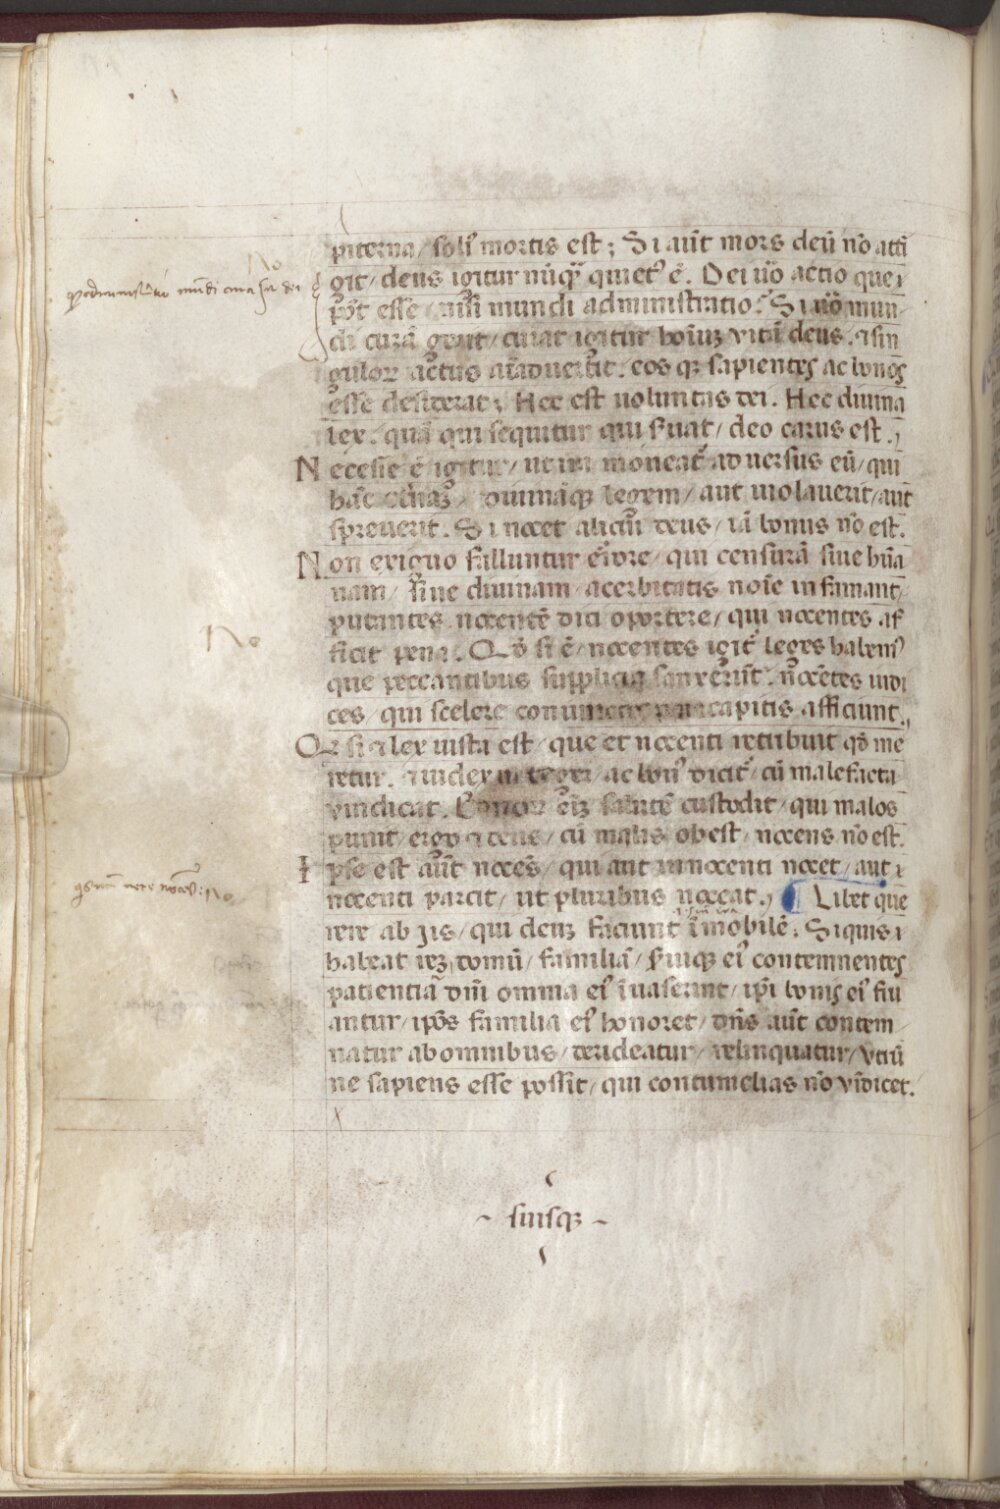 piterna / soli᷒ mortis est ; Si aūt mors deū nō atti
git / deus igitur nūq̄ quiet᷒ ē. Dei ūo actio que ī
p̄t esse / nisi mundi administratio? Si ūo mun-
di curā gerit / curat igitur hoīuꝫ vitā deus. ⁊ sin
guloꝝ actus aīaduertit. eos qꝫ sapientes ac bonos
esse desiderat ; Hec est uoluntas dei. Hec diuina
lex. quā qui sequitur qui s̄uat / deo carus est.,
Necesse ē igitur / ut ira moueat᷒ aduersus eū / qui
hāc et̄naꝫ / diuināqꝫ legem / aut uiolauerit / aut
spreuerit. Si nocet alicui deus / iā bonus nō est.
Non exiguo falluntur ērore / qui censurā siue hūa
nam / siue diuinam / acerbitatis noīe infamant /
putantes nocentē dici oportere / qui nocentes af
ficit pena. Qd̄ si ē / nocentes igit᷒ leges habem᷒
que peccantibus supplicia sanxerūt. nocētes iudi
ces / qui scelere conuictos pena capitis afficiunt.,
Qꝫ si ⁊ lex iusta est / que et nocenti retribuit qd̄ me
retur. ⁊ iudex integer / ac bon᷒ dicit᷒ / cū malefacta
vindicat. Bonoꝝ eīꝫ salutē custodit / qui malos
punit / ergo ⁊ deus / cū malis obest / nocens nō est.
Ipse est aūt nocēs / qui aut innocenti nocet / aut ī
nocenti parcit / ut pluribus noceat., Libet que
rere ab Jis / qui deuꝫ faciunt īmobilē. Siquis ī
habeat reꝫ domū / familiā / s̄uiqꝫ ei᷒ contemnentes
patientiā dn̄i omnia ei᷒ īuaserint / ip̄i bonis ei᷒ fru
antur / ip̄os familia ei᷒ honoret / dn̄s aūt contem
natur ab omnibus / derideatur / relinquatur / vtrū
ne sapiens esse possit / qui contumelias nō vīdicet.
No
No
No
~ suisqꝫ ~